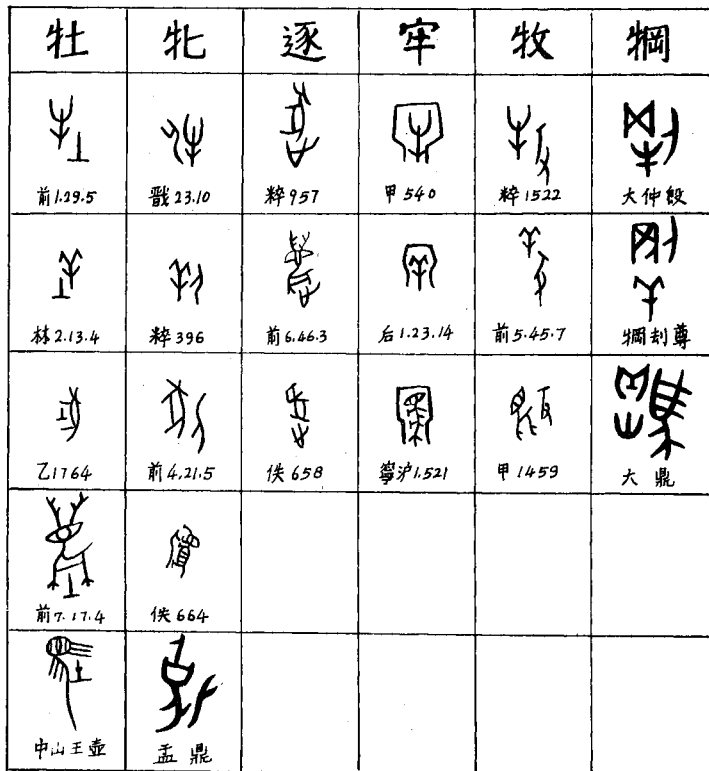 牡 牝 逐 牢 牧 犅
前1.29.5 戬23.10 粹957 甲540 粹1522 大仲𣪘
林2.13.4 粹396 前6.46.3 后1.23.14 前5.45.7 犅刦尊
乙1764 前4.21.5 佚658 寧沪1.521 甲1459 大鼎
前7.17.4 佚664
中山王壺 盂鼎